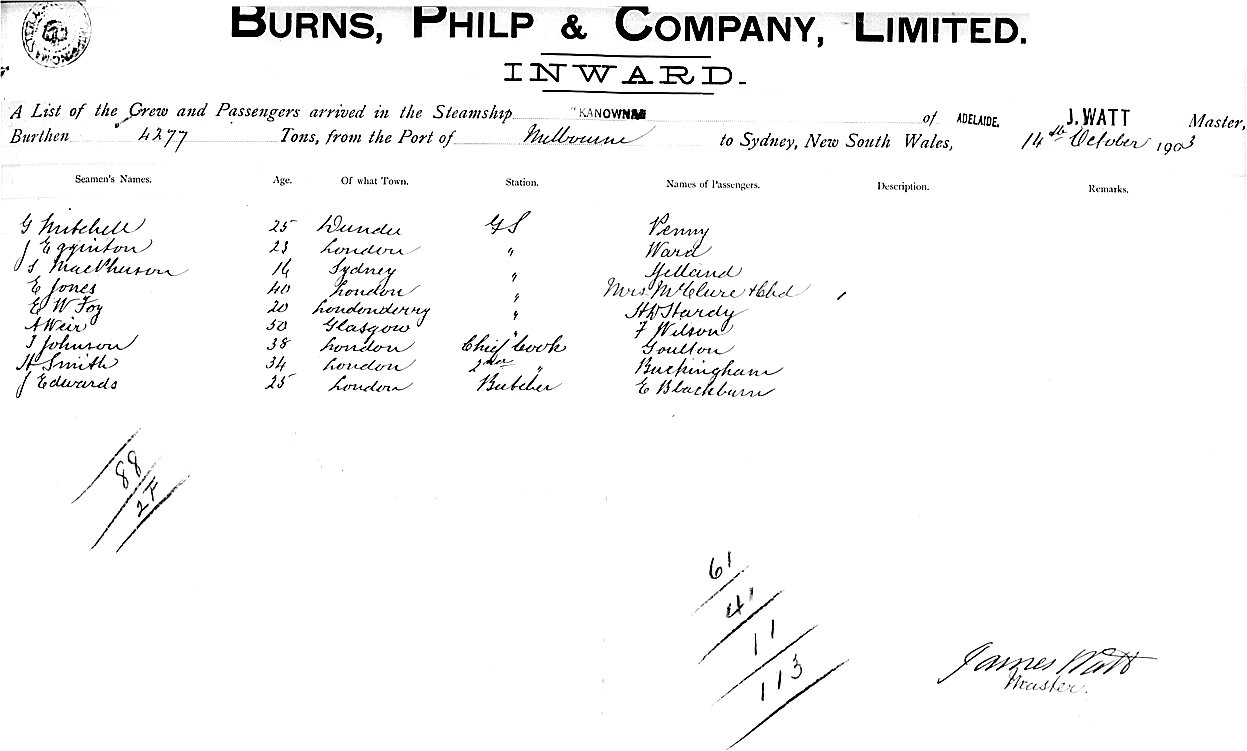 BURNS, PHILP & COMPANY, LIMITED.
INWARD.
A List of the Crew and Passengers arrived in the Steamship "KANOWNA of ADELAIDE. J. WATT Master,
Burthen 4277 Tons, from the Port of Melbourne to Sydney, New South Wales, 14th October 1903
Seamen's Names. Age. Of what Town. Station. Names of Passengers. Description. Remarks.
G Mitchell 25 Dundee GS Penny
J Egginton 23 London " Ward
S MacPherson 16 Sydney " Yelland
E Jones 40 London " Mrs McClure & Chd 1
E W Foy 20 Londonderry " H D Hardy
A Weir 50 Glasgow " F Wilson
J Johnson 38 London Chief Cook Goulton
H Smith 34 London 2nd " Buckingham
J Edwards 25 London Butcher E Blackburn
88
2F
61
41
11
113
James Watt
Master.